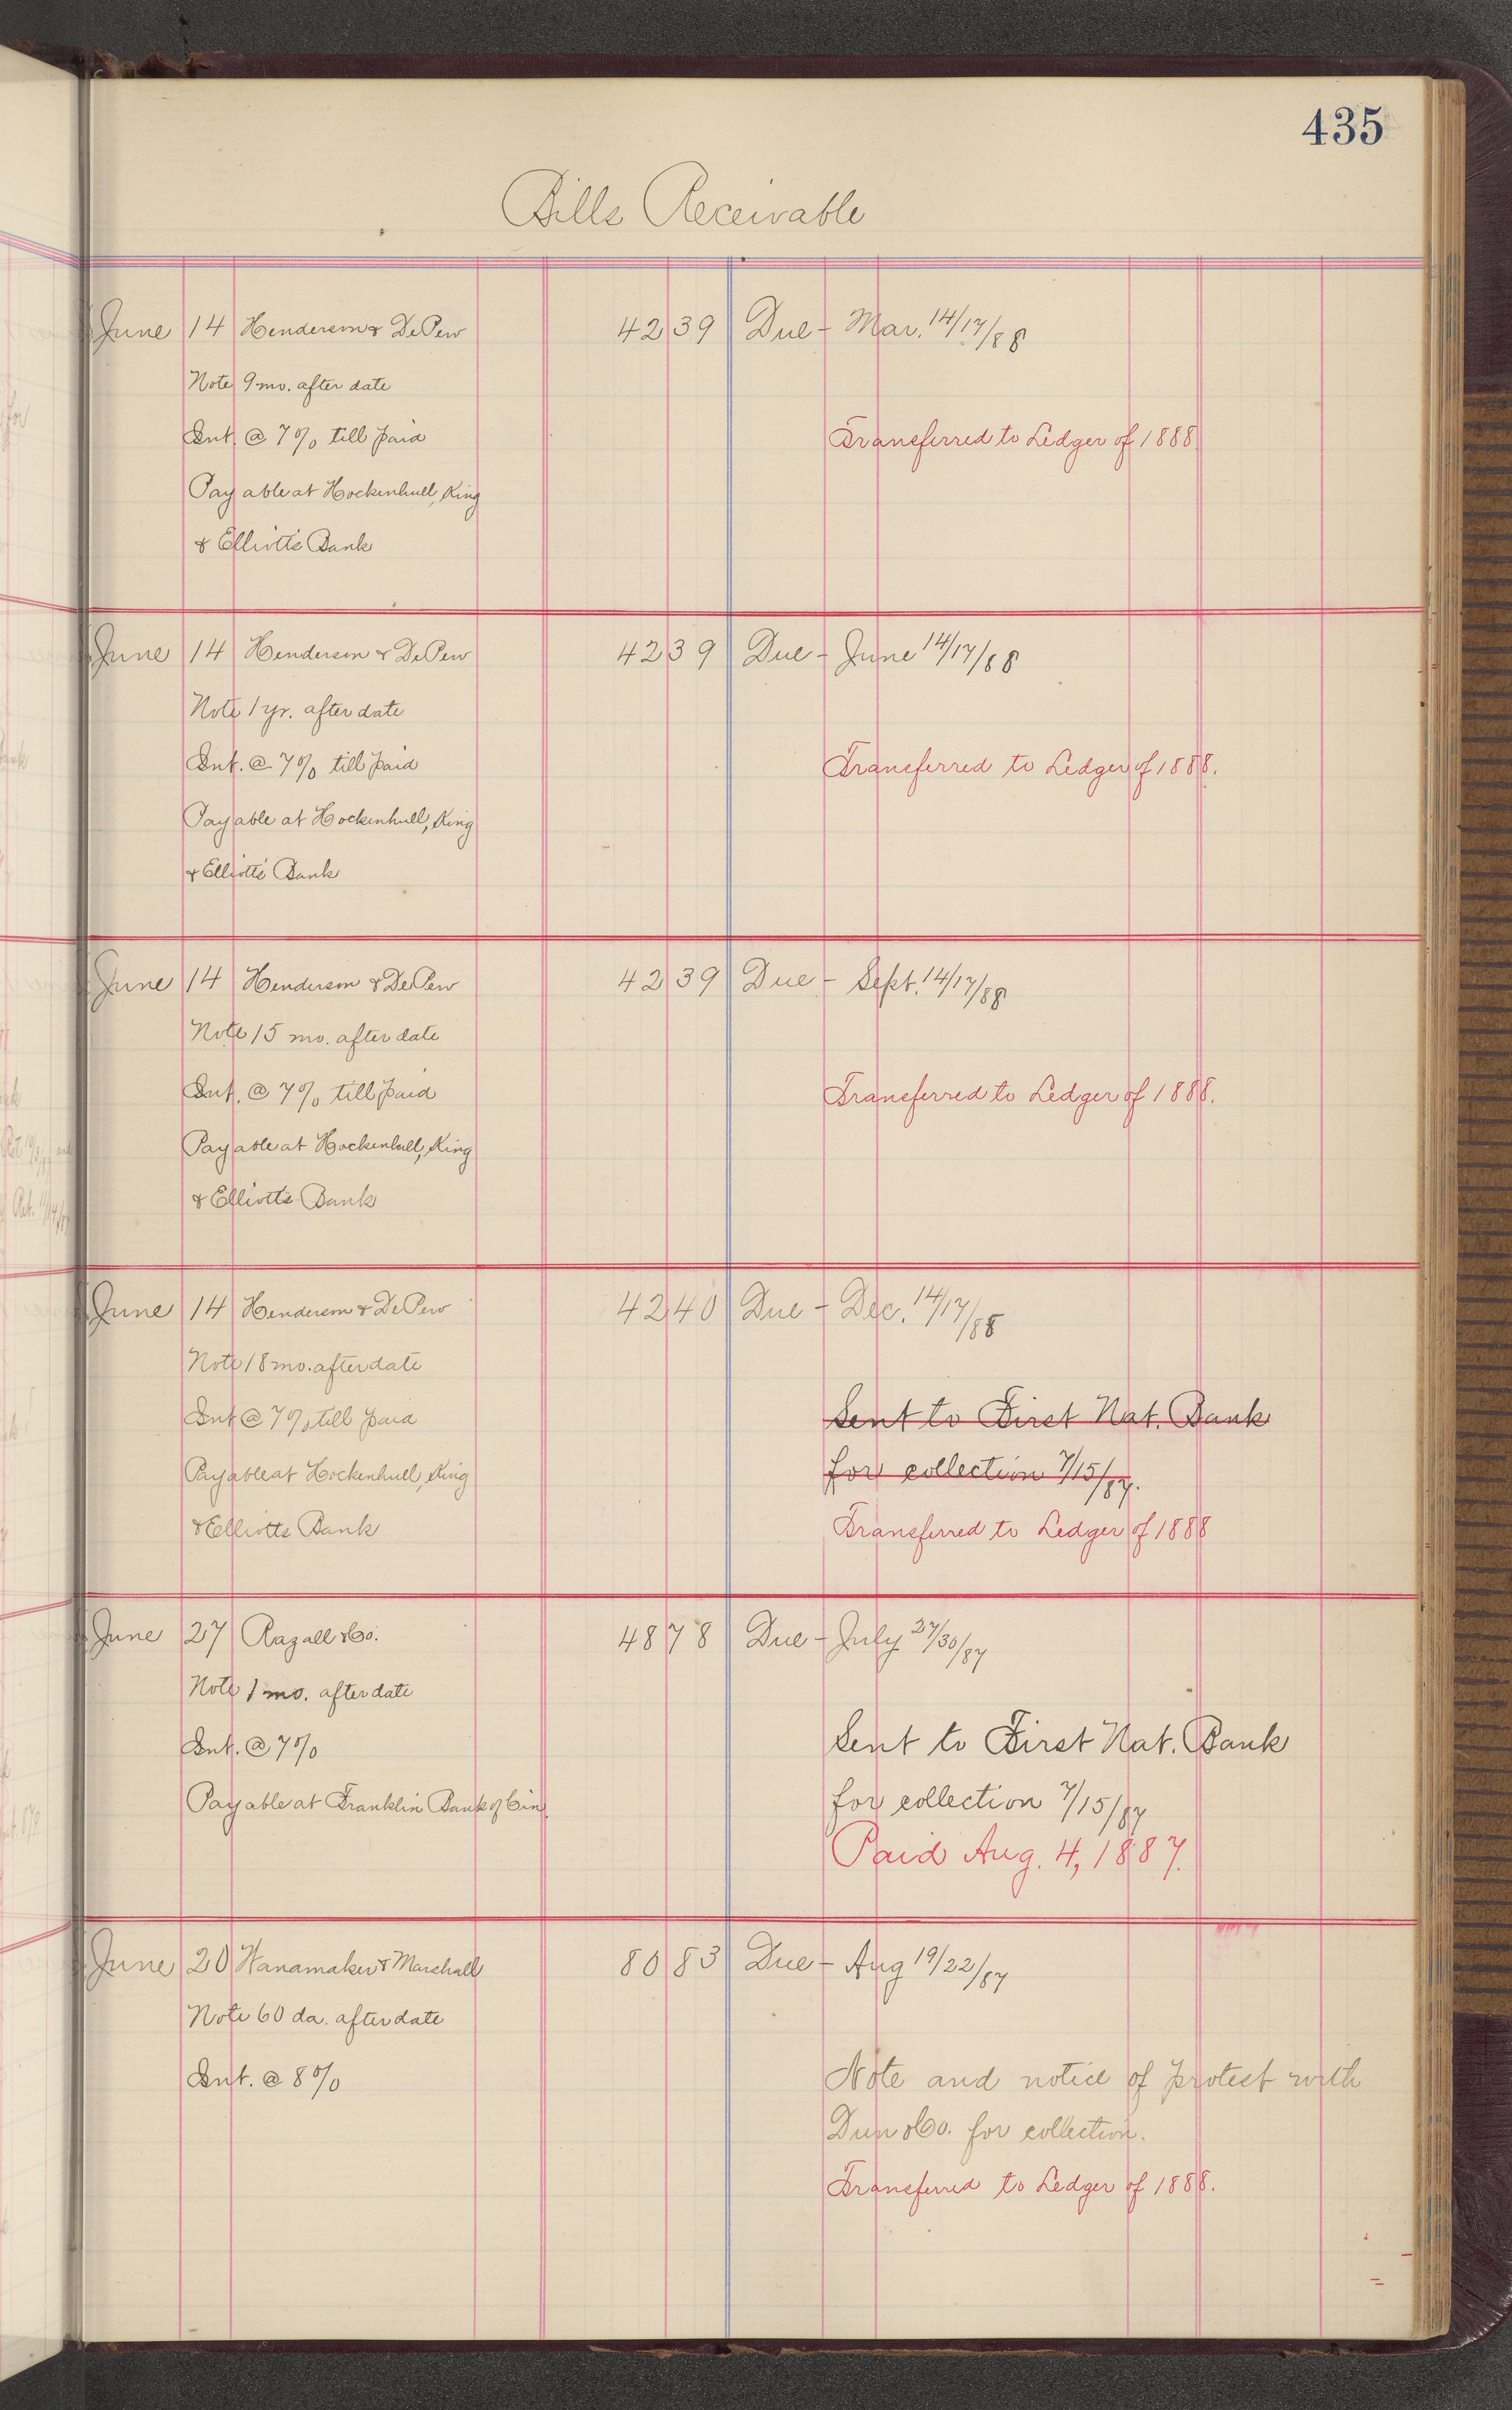 435
Bills Receivable
June 14 Henderson & DePew 42 39 Due - Mar. 14/17/88
Note 9 mo. after date
Int. @ 7% till paid Transferred to Ledger of 1888
Payable at Hockenhull, King
& Elliott's Bank
June 14 Henderson & DePew 42 39 Due - June 14/17/88
Note 1 yr. after date
Int. @ 7% till paid Transferred to Ledger of 1888.
Payable at Hockenhull, King
& Elliott's Bank
June 14 Henderson & DePew 42 39 Due - Sept. 14/17/88
Note 15 mo. after date
Int. @ 7% till paid Transferred to Ledger of 1888.
Payable at Hockenhull, King
& Elliotts Bank
June 14 Henderson & DePew 42 40 Due - Dec. 14/17/88
Note 18 mo. after date
Int @ 7% till paid Sent to First Nat. Bank
Payable at Hockenhull, King for collection 7/15/87.
& Elliotts Bank Transferred to Ledger of 1888
June 27 Razall & Co. 48 78 Due - July 27/30/87
Note 1 mo. after date
Int. @ 7% Sent to First Nat. Bank
Payable at Franklin Bank of Cin. for collection 7/15/87
Paid Aug. 4, 1887.
June 20 Wanamaker & Marshall 80 83 Due - Aug 19/22/87
Note 60 da. after date
Int. @ 8% Note and notice of protest with
Dun & Co. for collection.
Transferred to Ledger of 1888.